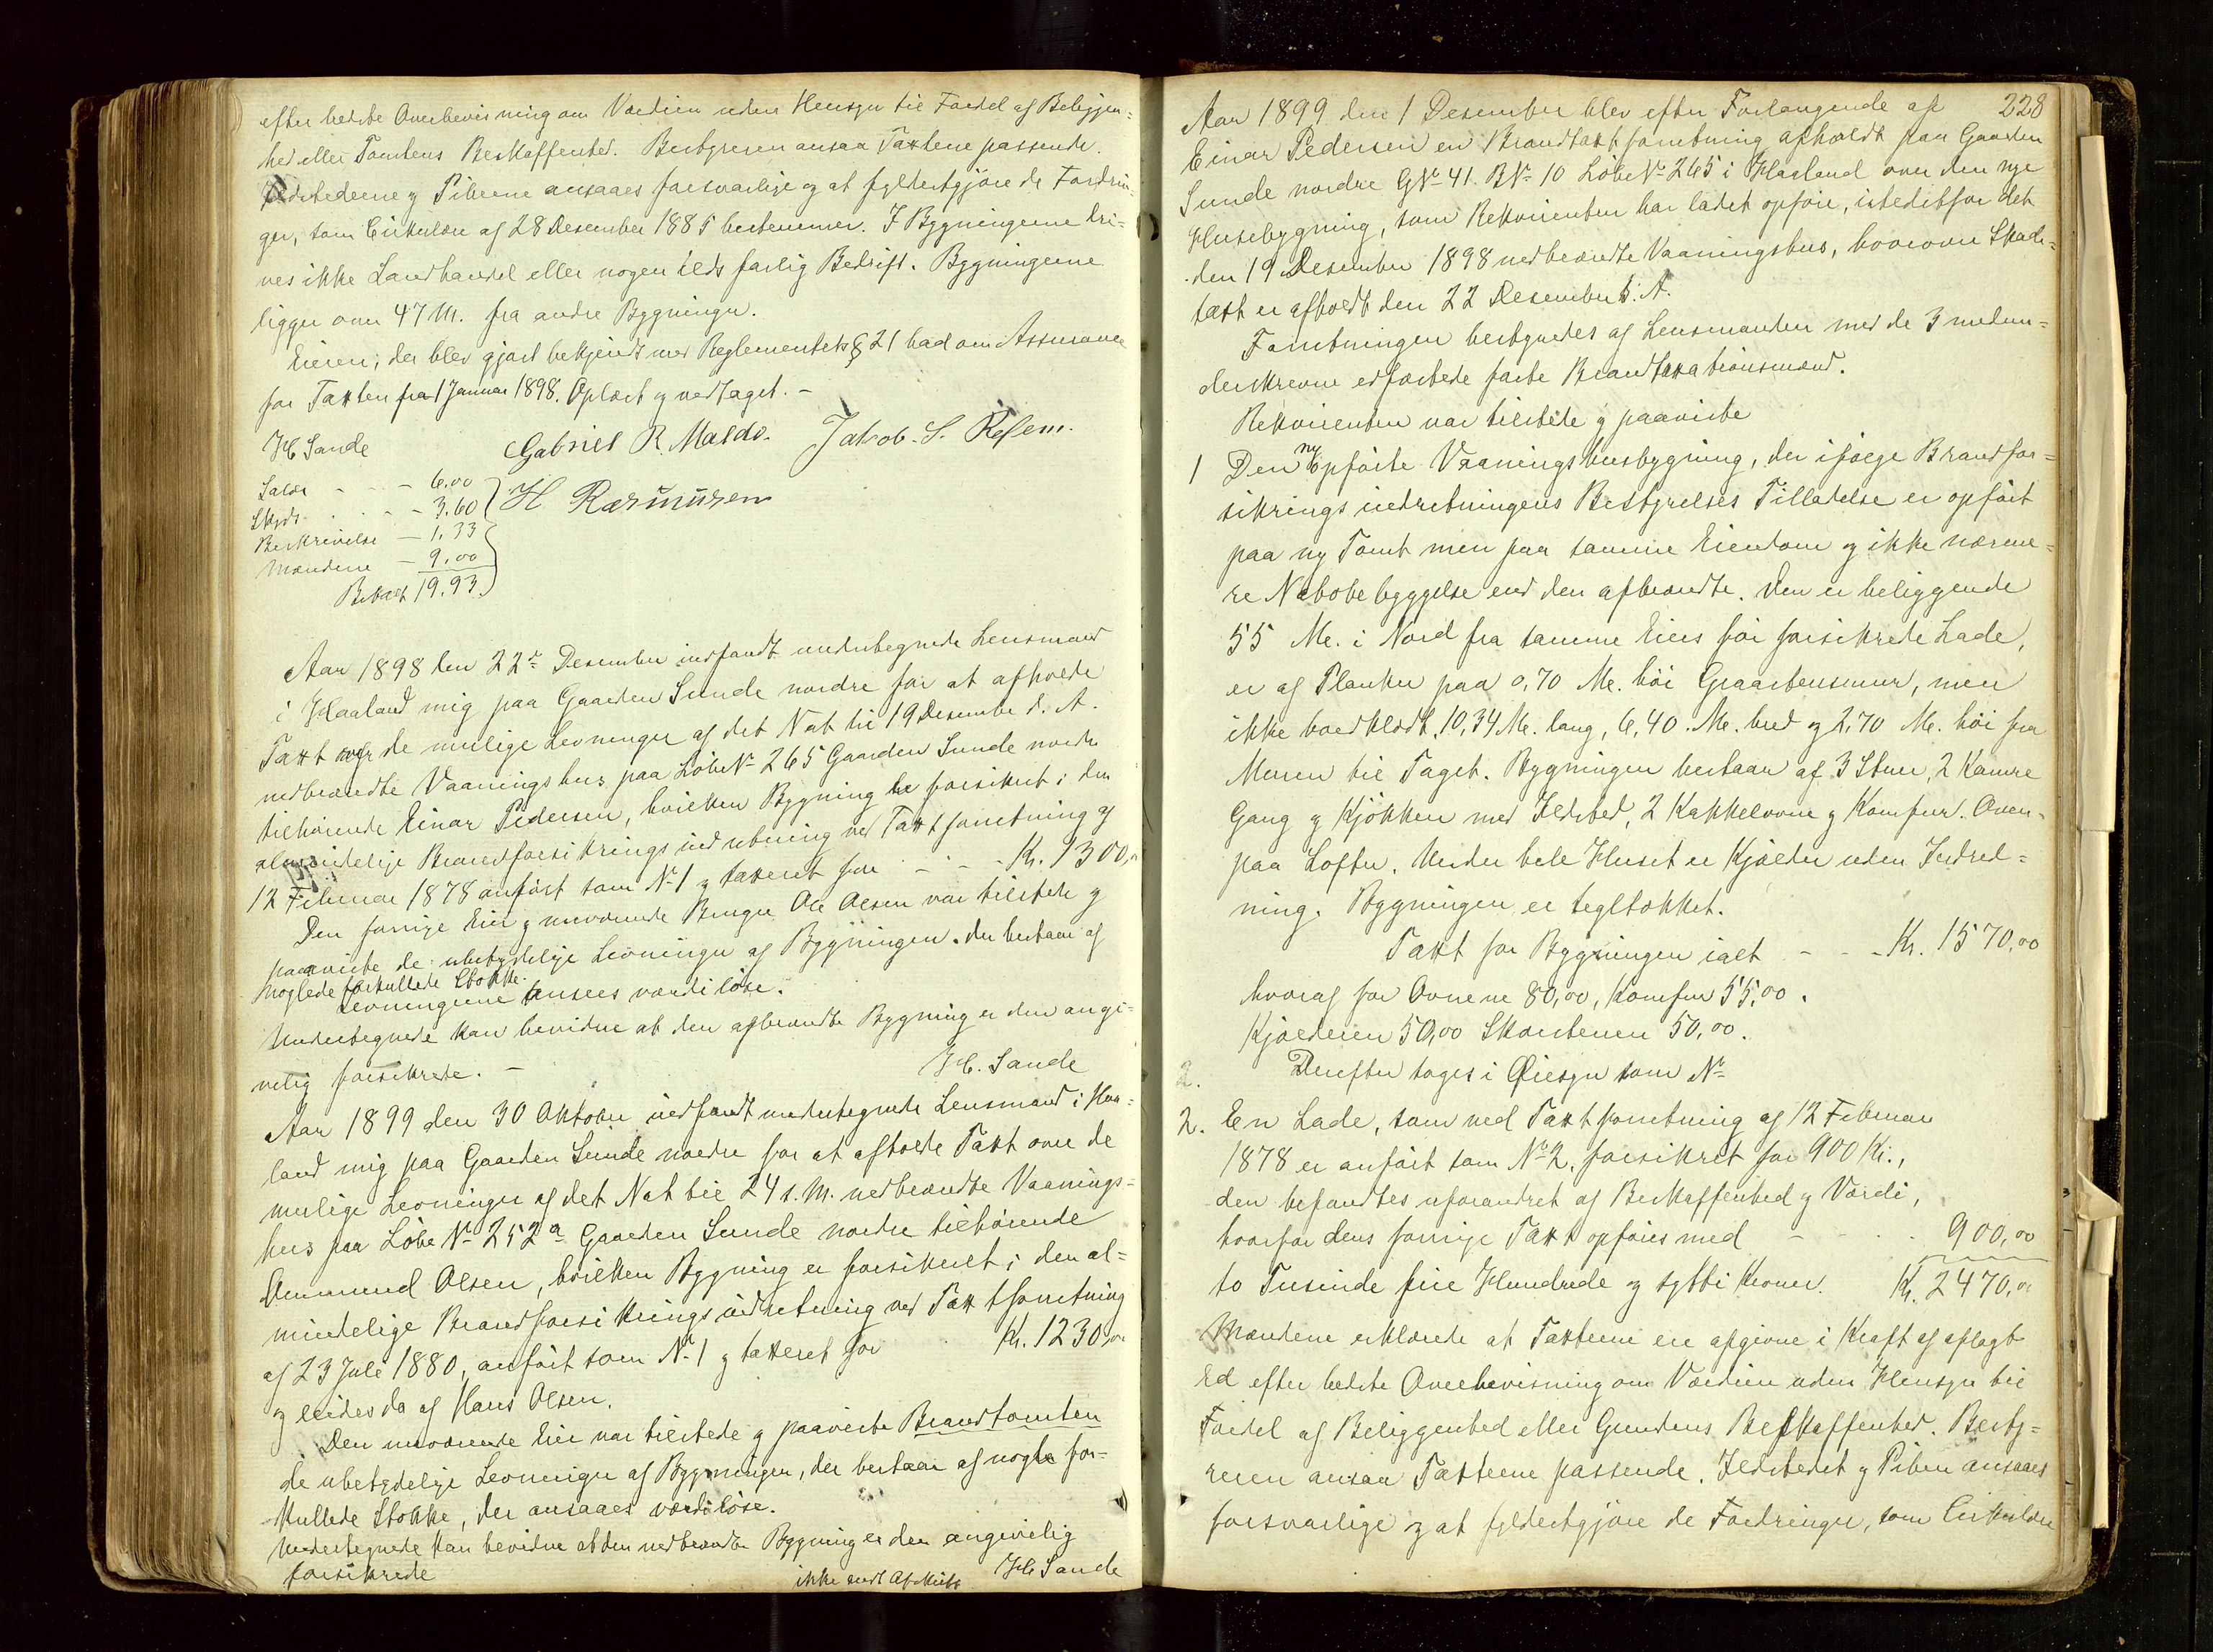 efter bedste Overbevisning om Værdien uden Hensyn til Fordel af Beliggen=
hed eller Tomtens Beskaffenhed. Bestyreren ansaa Taxtene passende.
Ildstederne og Piberne ansaaes forsvarlige og at fyldestgjøre de Fordrin-
ger, som Cirkulære af 28 Desember 1885 bestemmer. I Bygningerne dri=
ves ikke Landhandel eller nogen ilds farlig Bedrift. Bygningerne
ligger over 47 M. fra andre Bygninger.
Eieren, der blev gjort bekjendt med Reglementets § 21 bad om Assurance
for Taxten fra 1 Januar 1898. Oplæst og vedtaget. -
H Sande Gabriel R. Maldo. Jakob. S. Risem.
H Rasmussen
Salær - - - 6.00
Skyds - - 3.60
Beskrivelse - 1,33
Mændene - 9,00
Betalt 19.93
Aar 1898 den 22de Desember indfandt undertegnede Lensmand
i Haaland mig paa Gaarden Sunde nordre for at afholde
Taxt over de mulige Levninger af det Nat til 19 Desember d. A.
nedbrændte Vaaningshus paa Løbe No 265 Gaarden Sunde nordre
tilhørende Einar Pedersen, hvilken Bygning er forsikret i den
almindelige Brandforsikringsindretning ved Taxtforretning af
12 Februar 1878 anført som No 1 og taxeret for - - - Kr. 1300,00
Den forrige Eier og nuværende Bruger Ole Olsen var tilstede og
paaviste de ubetydelige Levninger af Bygningen. der bestaar af
noglede forkullede Stokke.
Levningerne ansees værdiløse.
Undertegnede kan bevidne at den afbrændte Bygning er den angi=
velig forsikrede. -
H. Sande
Aar 1899 den 30 Oktober indfandt undertegnede Lensmand i Haa=
land mig paa Gaarden Sunde nordre for at afholde Taxt over de
mulige Levninger af det Nat til 24 d. M. nedbrændte Vaanings=
hus paa Løbe No 252a Gaarden Sunde nordre tilhørende
Ommund Olsen, hvilken Bygning er forsikret i den al=
mindelige Brandforsikringsindretning ved Taxtforretning
af 23 Juli 1880, anført som No 1 og taxeret for Kr. 1230,00
og eiedes da af Hans Olsen.
Den nuværende Eier var tilstede og paaviste Brandtomten
de ubetydelige Levninger af Bygningen, der bestaar af nogle for-
kullede Stokke, der ansaaes værdiløse.
Undertegnede kan bevidne at den nedbrændte Bygning er den angivelig
forsikrede
ikke sendt Afskrift H Sande
228
Aar 1899 den 1 Desember blev efter Forlangende af
Einar Pedersen en Brandtaxtforretning afholdt paa Gaarden
Sunde nordre GNo 41. BNo 10 LøbeNo 265 i Haaland over den nye
Husebygning, som Rekvirenten har ladet opføre, istedetfor det
den 19 Desember 1898 nedbrændte Vaaningshus, hvorover Skade=
taxt er afholdt den 22 Desember s. A.
Forretningen bestyredes af Lensmanden med de 3 nedun=
derskrevne edfæstede faste Brandtaxationsmænd.
Rekvirenten var tilstede og paaviste
1 Den ny opførte Vaaningshusbygning, der ifølge Brandfor=
sikringsindretningens Bestyrelses Tilladelse er opført
paa ny Tomt men paa samme Eiendom og ikke nærme=
re Nabobebyggelse end den afbrændte. Den er beliggende
55 Me. i Nord fra samme Eiers før forsikrede Lade,
er af Planker paa 0,70 Me. høi Graastensmur, men
ikke bordklædt, 10,34 Me. lang, 6,40. Me. bred og 2,70 Me. høi fra
Muren til Taget. Bygningen bestaar af 3 Stuer, 2 Kamre
Gang og Kjøkken med Ildsted, 2 Kakkelovne og Komfur. Oven-
paa Lofter. Under hele Huset er Kjælder uden Indred=
ning. Bygningen er tegltækket.
Taxt for Bygningen ialt - - - Kr. 1570,00
hvoraf for Ovnene 80,00, Komfur 55,00.
Kjælderen 50,00 Skorstenen 50,00.
2. Derefter toges i Øiesyn som No
2. En Lade, som ved Taxtforretning af 12 Februar
1878 er anført som No 2, forsikret for 900 Kr.,
den befandtes uforandret af Beskaffenhed og Værdi,
hvorfor dens forrige Taxt opføres med - - - 900,00
to Tusinde fire Hundrede og sytti Kroner. Kr. 2470,00
Mændene erklærede at Taxterne ere afgivne i Kraft af aflagt
Ed efter bedste Overbevisning om Værdien uden Hensyn til
Fordel af Beliggenhed eller Grundens Beskaffenhed. Besty=
reren ansaa Taxterne passende. Ildstedet og Piben ansaaes
forsvarlige og at fyldestgjøre de Fordringer, som Cirkulære